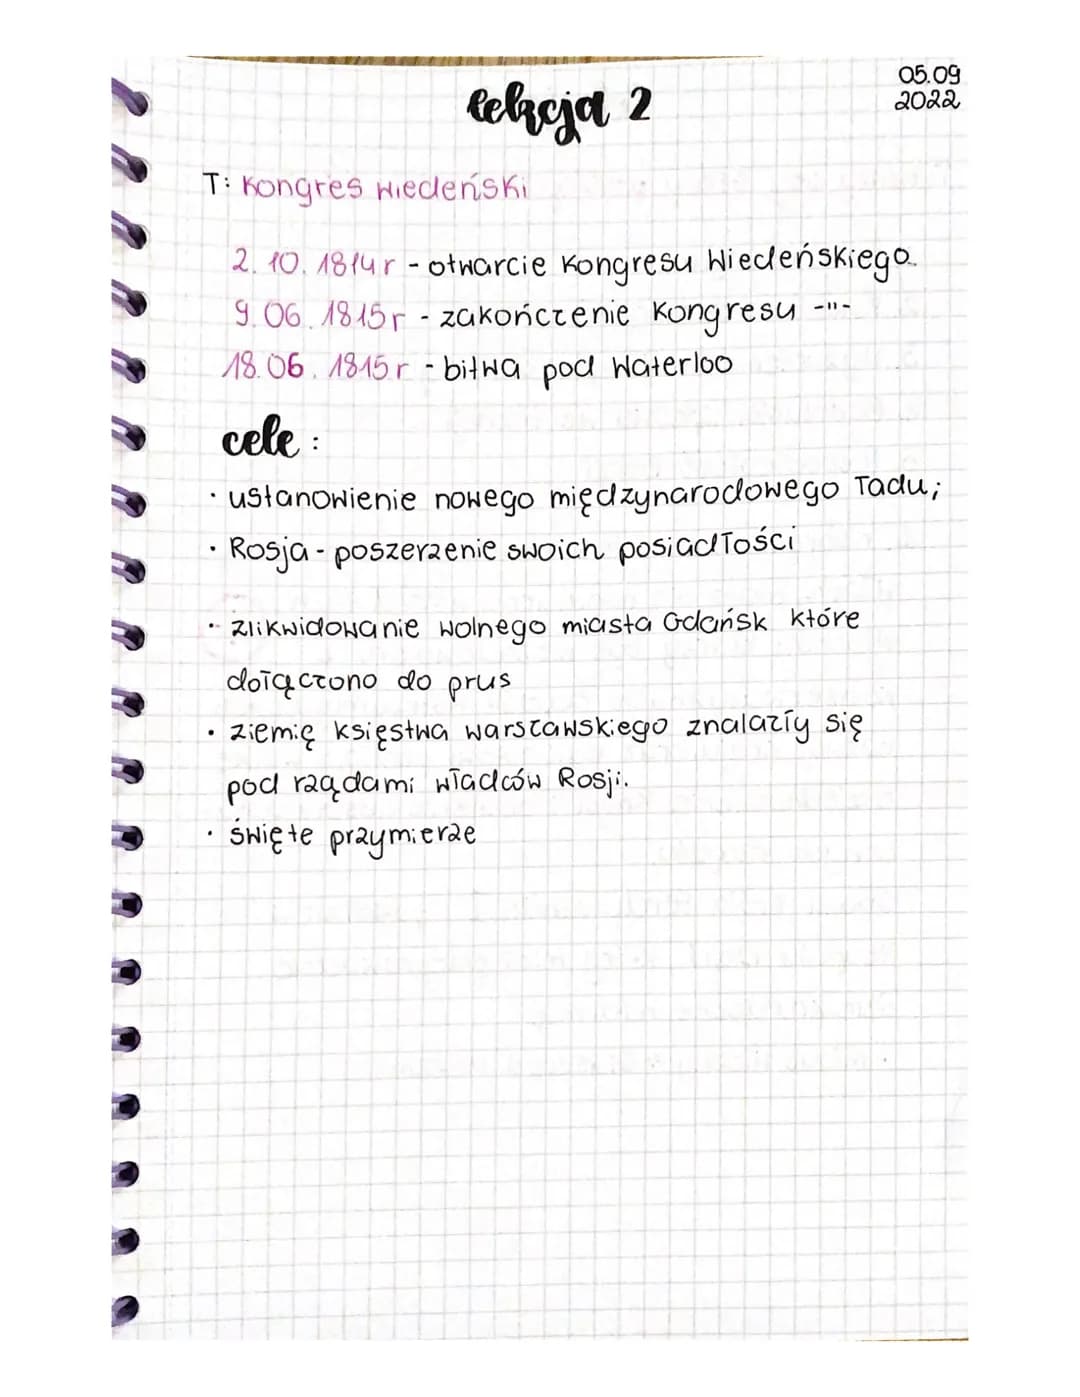 lekcja 2
05.09
2022
T: Kongres wiedeński
2. 10. 1814 r - otwarcie Kongresu Wiedeńskiego.
9. 06. 1815 r - zakończenie Kongresu -"-
18. 06. 1815 r - bitwa pod Waterloo
cele :
· ustanowienie nowego międzynarodowego ładu;
· Rosja - poszerzenie swoich posiadłości
· zlikwidowanie wolnego miasta Gdańsk które
dołączono do prus
· ziemię księstwa warszawskiego znalazły się
pod rządami władców Rosji.
· święte przymierze